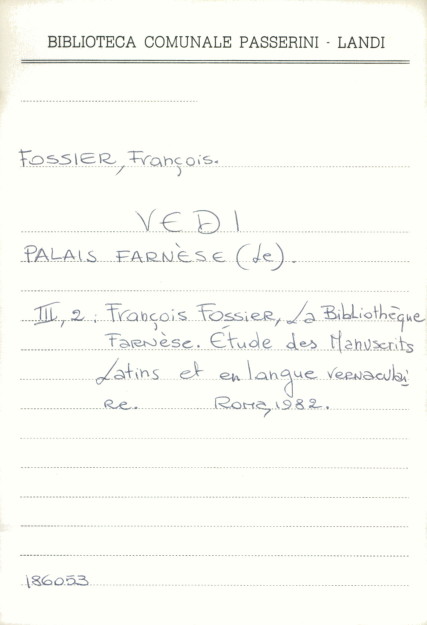 BIBLIOTECA COMUNALE PASSERINI - LANDI
FOSSIER, François.
VEDI
PALAIS FARNÈSE (Le).
III, 2: François FOSSIER, La Bibliothèque
FARNÈSE. Étude des Manuscrits
Latins et en langue vernaculai
re. Rome, 1982.
186053